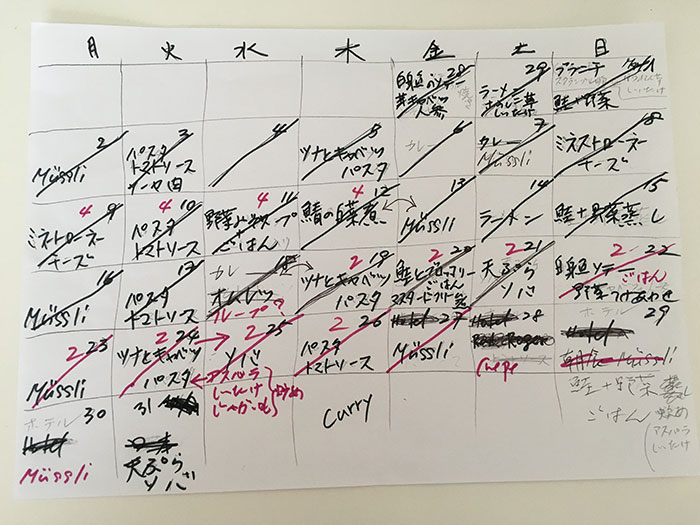 月 火 水 木 金 土 日
28 29
白身魚のソテー ラーメン ブランチ
鮭や野菜
2 3 4 5 6 7 8
Müssli パスタ ツナとキャベツ カレー カレー ミネストローネ
トマトソース パスタ Müssli チーズ
4 9 4 10 4 11 4 12 13 14 15
ミネストローネ パスタ ごはん 鯖の白菜煮 Müssli ラーメン 鮭+野菜蒸し
チーズ トマトソース
16 17 カレー 2 19 2 20 2 21 2 22
Müssli パスタ オムレツ ツナとキャベツ 鮭とブロッコリー 天ぷら 白身魚ソテー
トマトソース パスタ ごはん ソバ ごはん
野菜つけあわせ
2 23 2 24 2 25 2 26 27 28 29
Müssli ツナとキャベツ ソバ パスタ Hotel Hotel ホテル
パスタ トマトソース Müssli Crepe Müssli
アスパラ
しいたけ 炒め
じゃがいも
30 31 curry 鮭+野菜蒸し
ホテル ごはん 炒め
Hotel アスパラ
Müssli 天ぷら しいたけ
ソバ